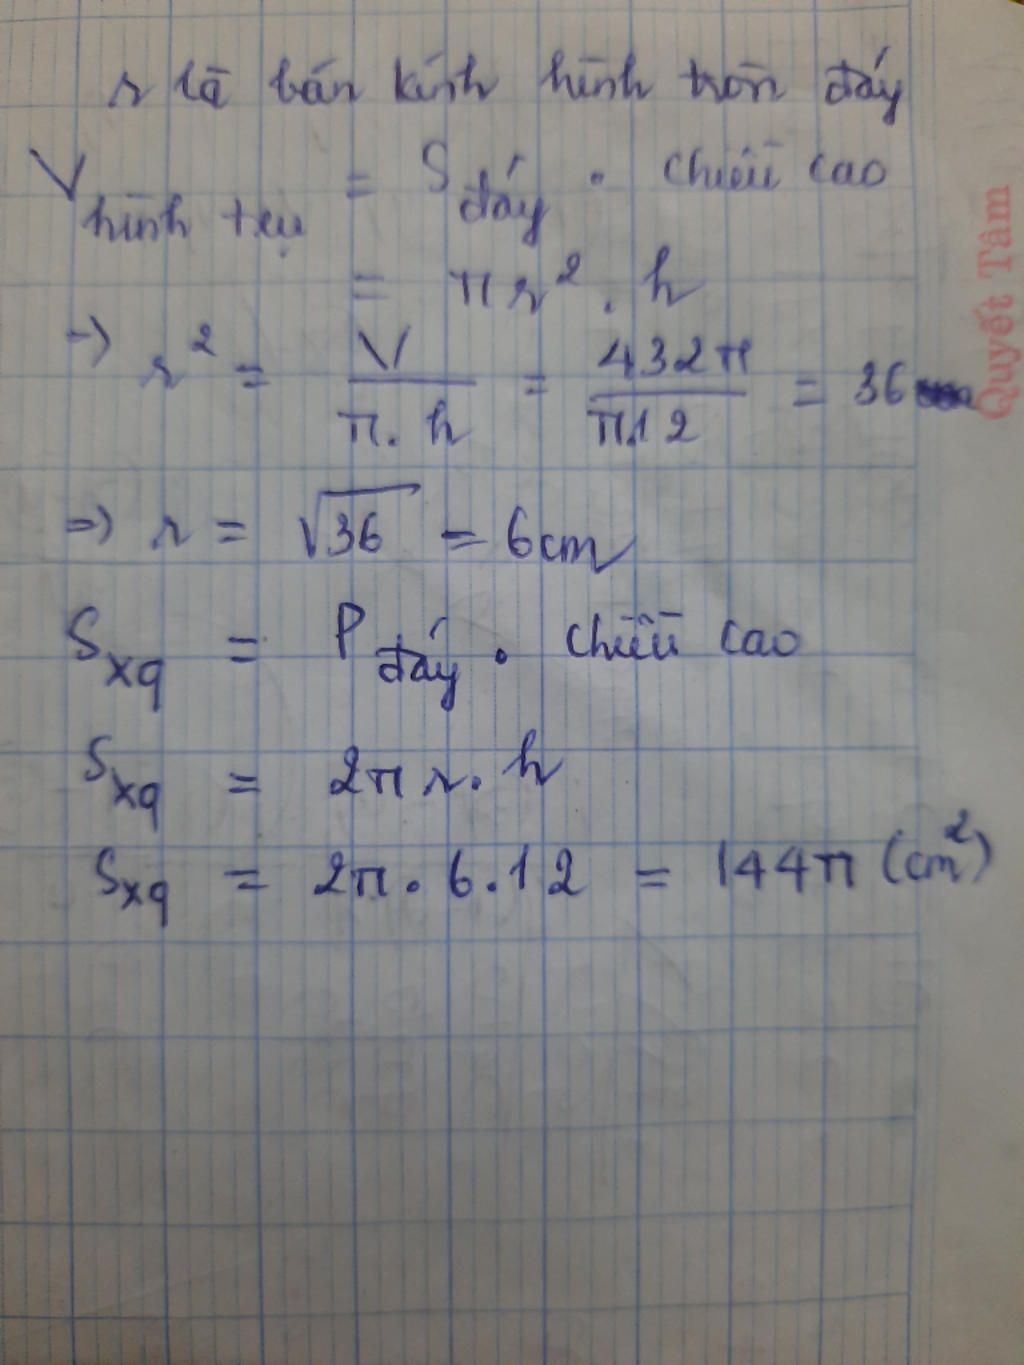 r là bán kính hình tròn đáy
V hình trụ = S đáy . chiều cao
= πr² . h
⇒ r² = V / π.h = 432π / π.12 = 36
⇒ r = √36 = 6cm
Sxq = P đáy . chiều cao
Sxq = 2πr.h
Sxq = 2π.6.12 = 144π (cm²)
Quyết Tâm